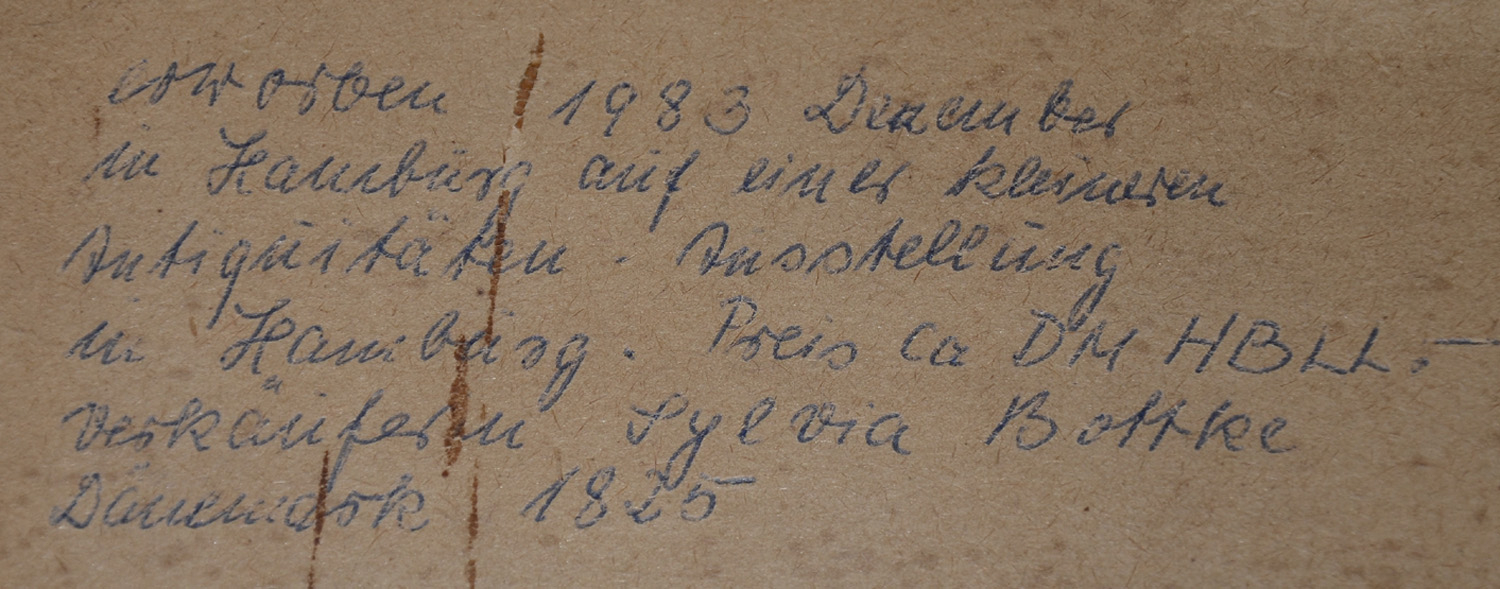 erworben 1983 Dezember
in Hamburg auf einer kleineren
Antiquitäten - Ausstellung
in Hamburg. Preis ca DM HBLL.-
Verkäuferin Sylvia Bottke
Dänemark 1825